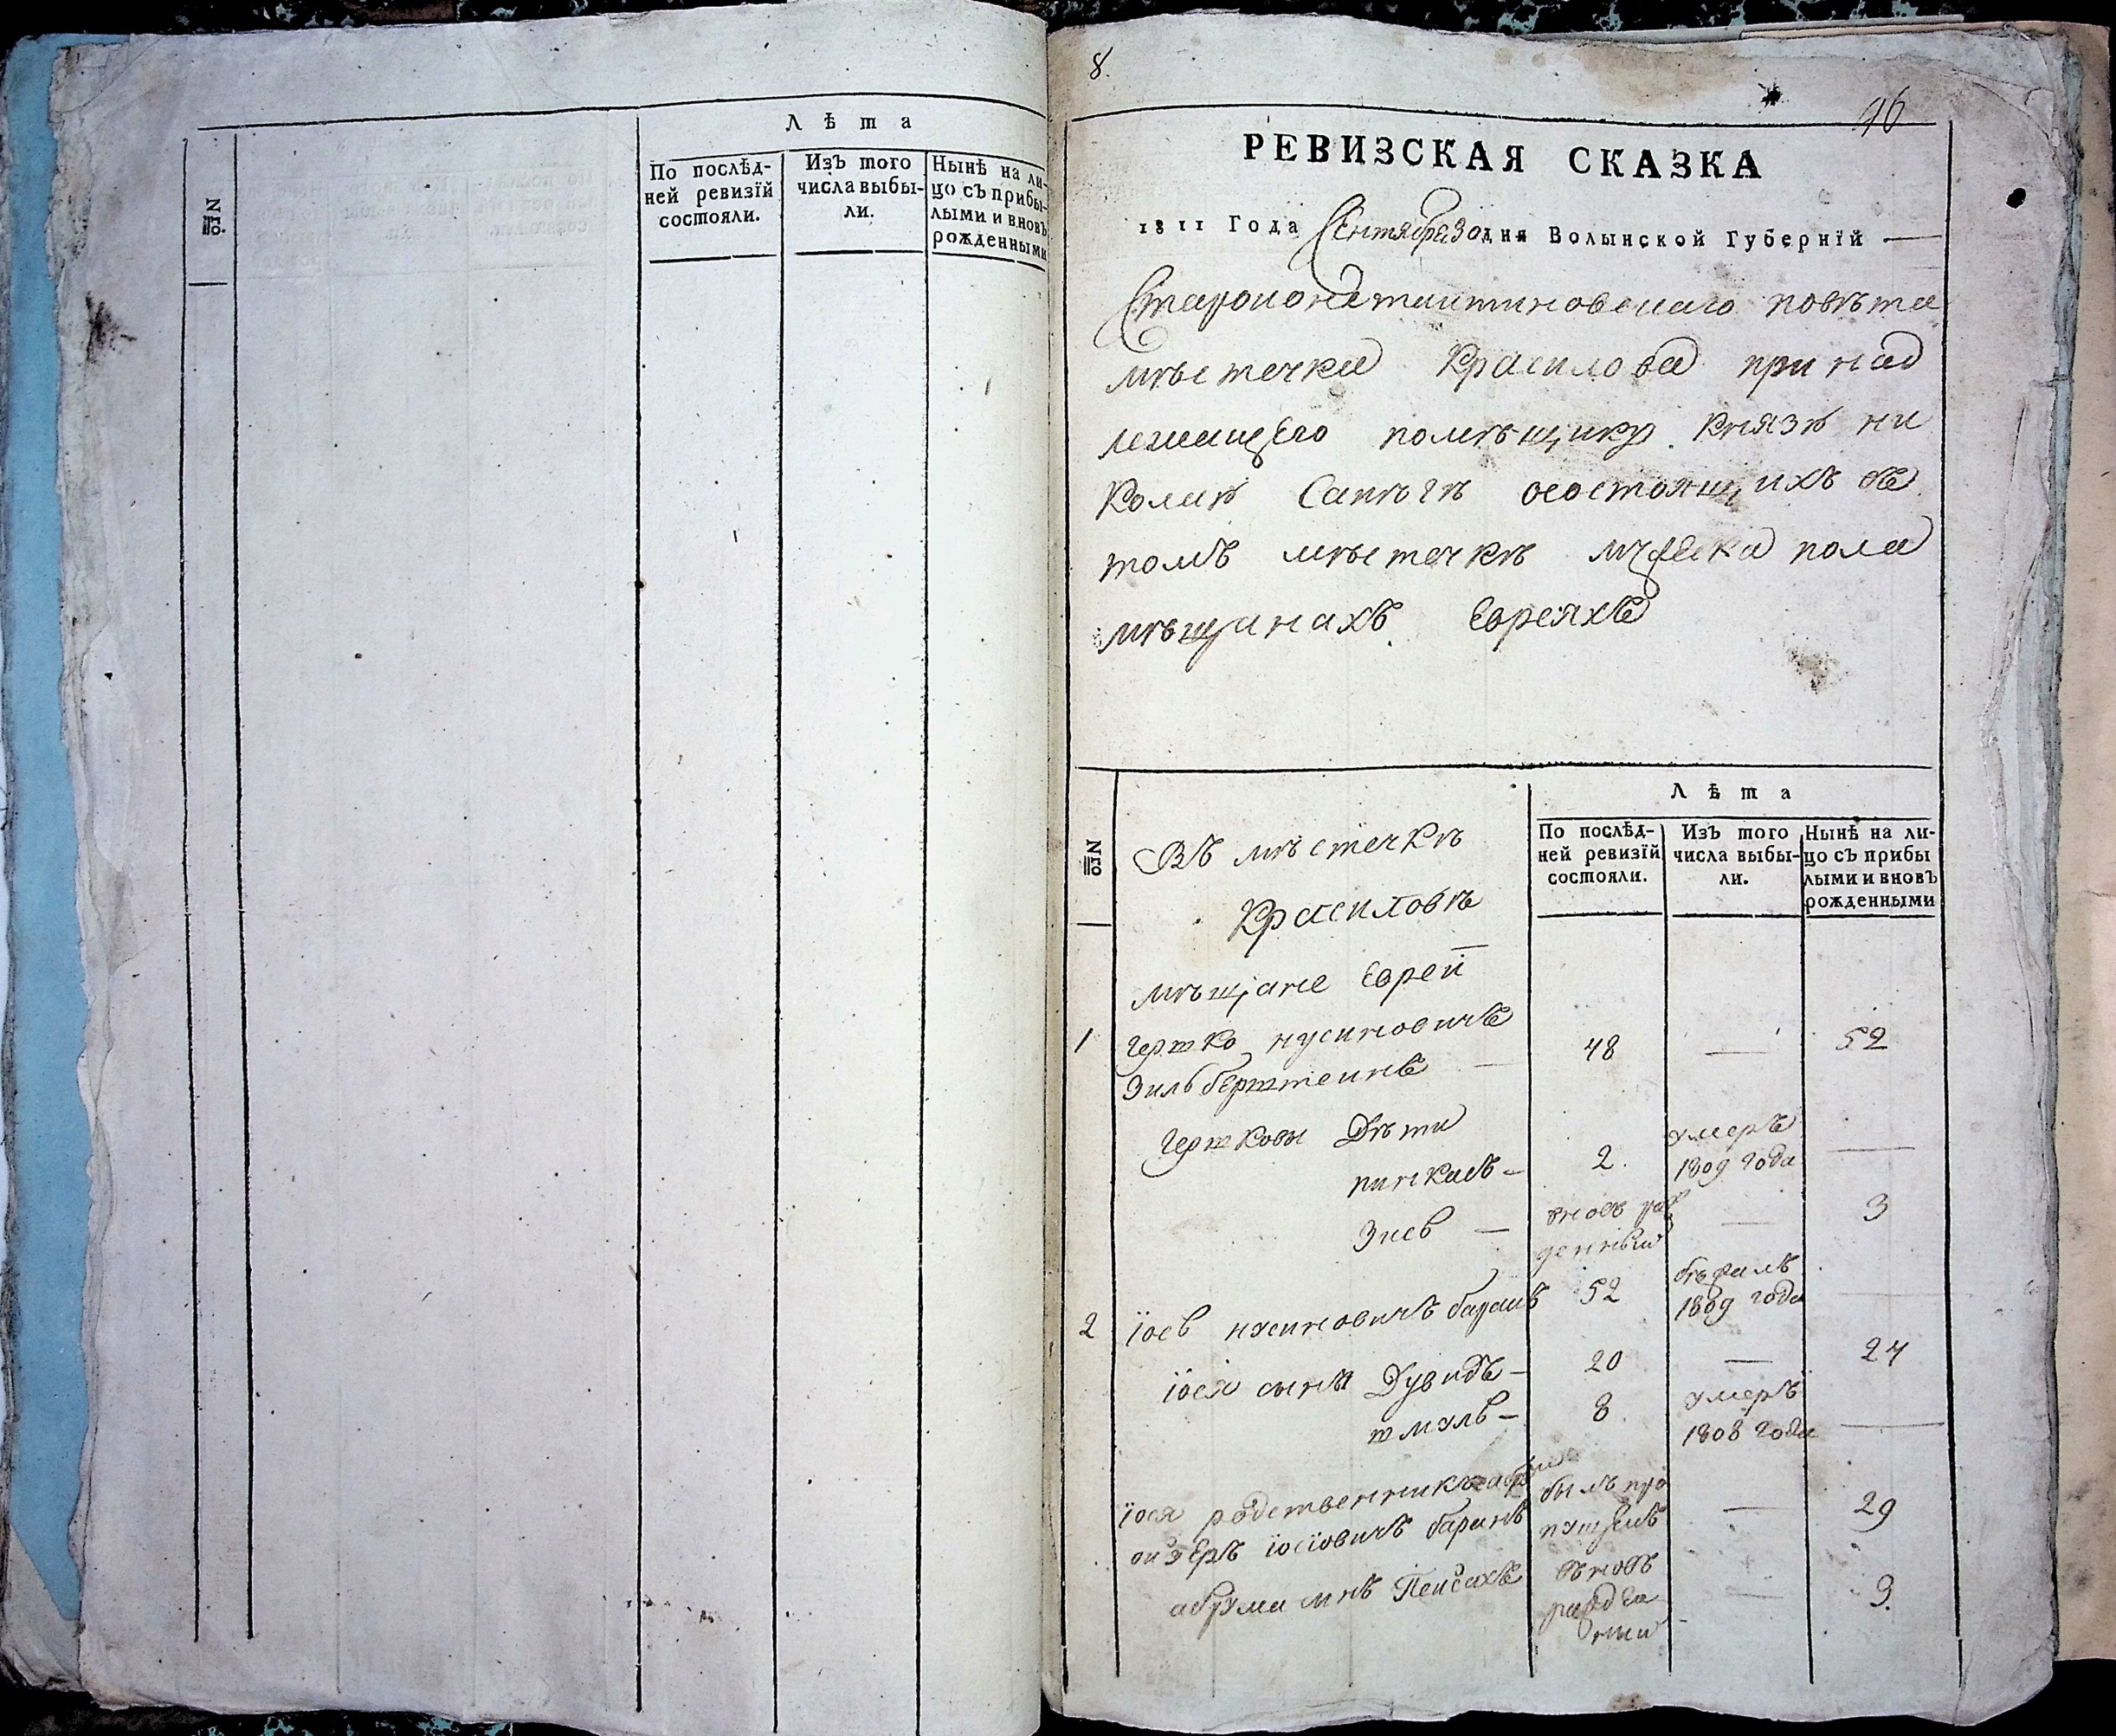 Лѣта
№.
По послѣд-
ней ревизїй
состояли.
Изъ того
числа выбы-
ли.
Нынѣ на ли-
цо съ прибы-
лыми и вновь
рожденными
8.
96
РЕВИЗСКАЯ СКАЗКА
1811 Года Сентября 30 дня Волынской Губернїй
Староконстантиновскаго повѣта
мѣстечка Красилова принад
лежащего помѣщику князѣ ни
колаѣ Сапѣгѣ осостоящихъ въ
томъ мѣстечкѣ мужеска пола
мѣщанахъ Евреяхъ
Лѣта
№
По послѣд-
ней ревизїй
состояли.
Изъ того
числа выбы-
ли.
Нынѣ на ли-
цо съ прибы
лыми и вновь
рожденными
Въ мѣстечкѣ
Красиловѣ
мѣщане Евреи
1 Гершко нусиновичъ 48 — 52
Зильберштеинъ
Гершковы Дѣти
пинкасъ — 2. умеръ 1809 года —
Зись — вновь рож денный — 3
2 їось нусиновичъ баранъ 52 бѣжалъ 1809 года —
їося сынъ Дувидъ — 20 — 24
шмуль — 8 умеръ 1808 года —
їося родственникъ абрам
оизеръ їосїовичъ баранъ былъ про пущенъ — 29
абрама сынъ Пеисахъ вновь рожден — 9.